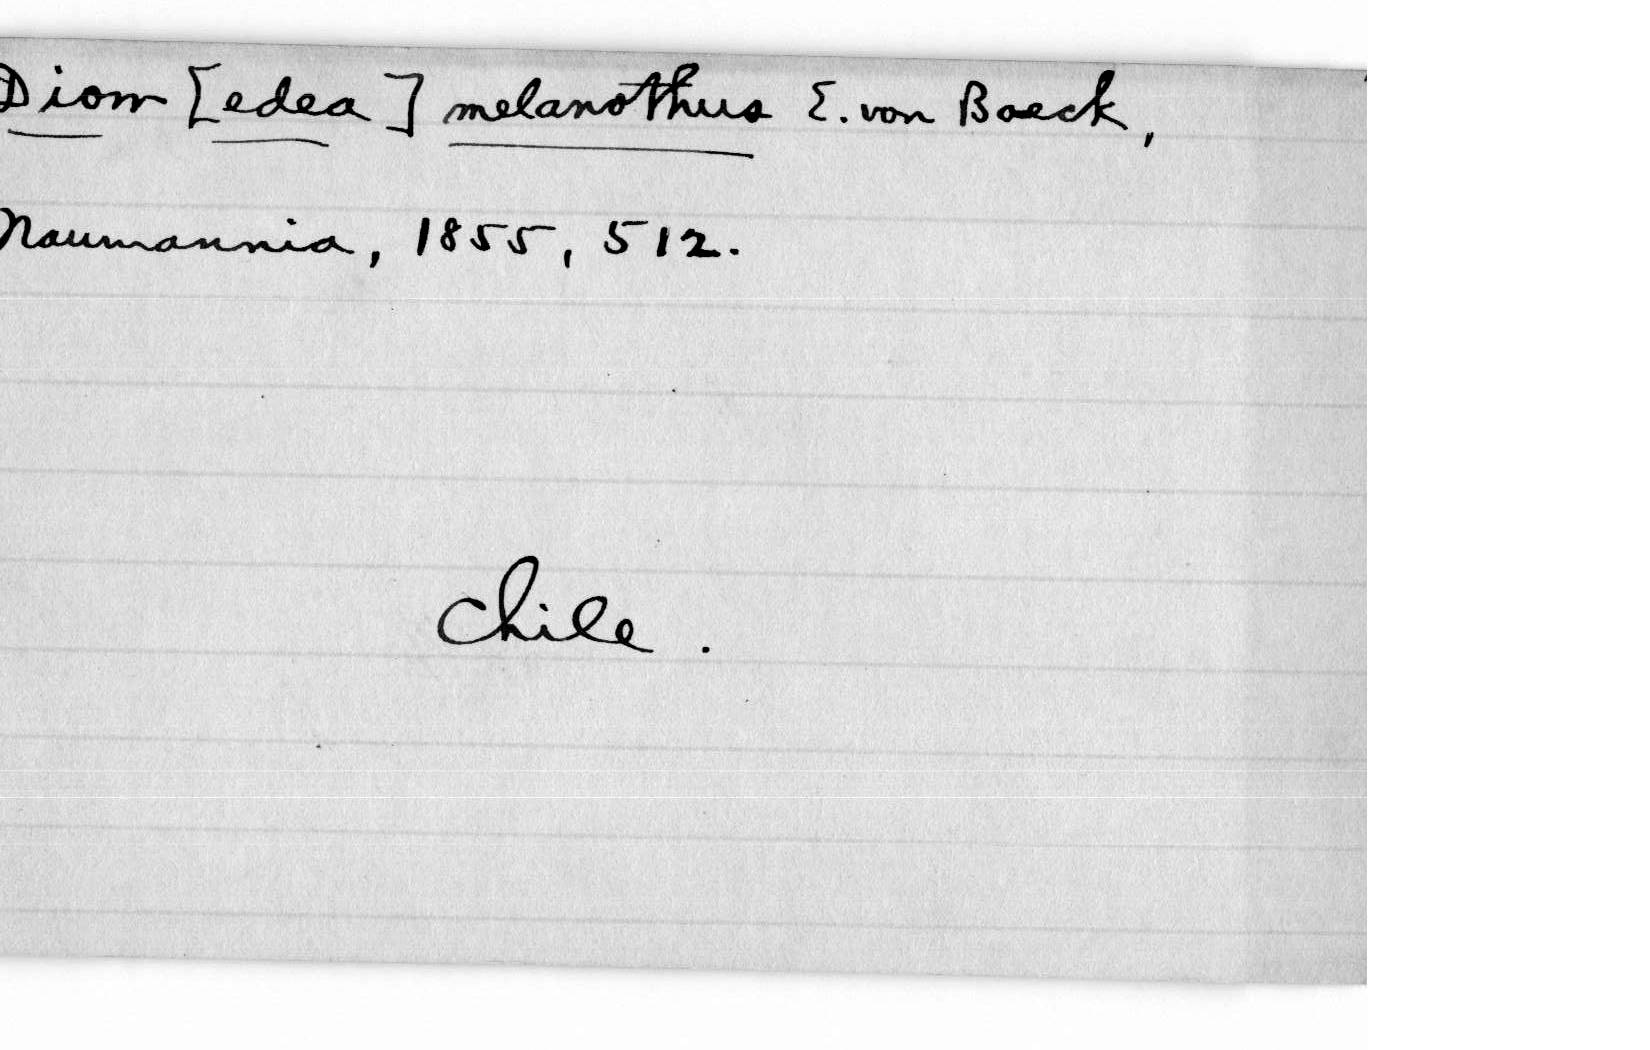 Diom [edea] melanothus E. von Boeck,
Naumannia, 1855, 512.
Chile.